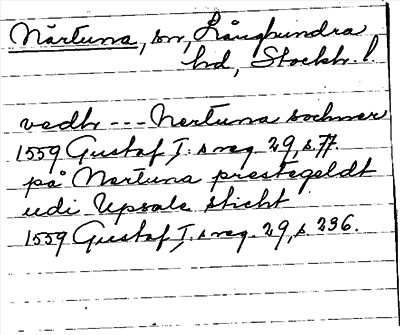 Närtuna, sn, Långhundra
hd, Stockh. l.
vedh --- Nertuna sochner
1559 Gustaf I:s reg. 29, s. 77.
på Nertuna prestegeldt
udi Upsale sticht
1559 Gustaf I:s reg. 29, s. 236.